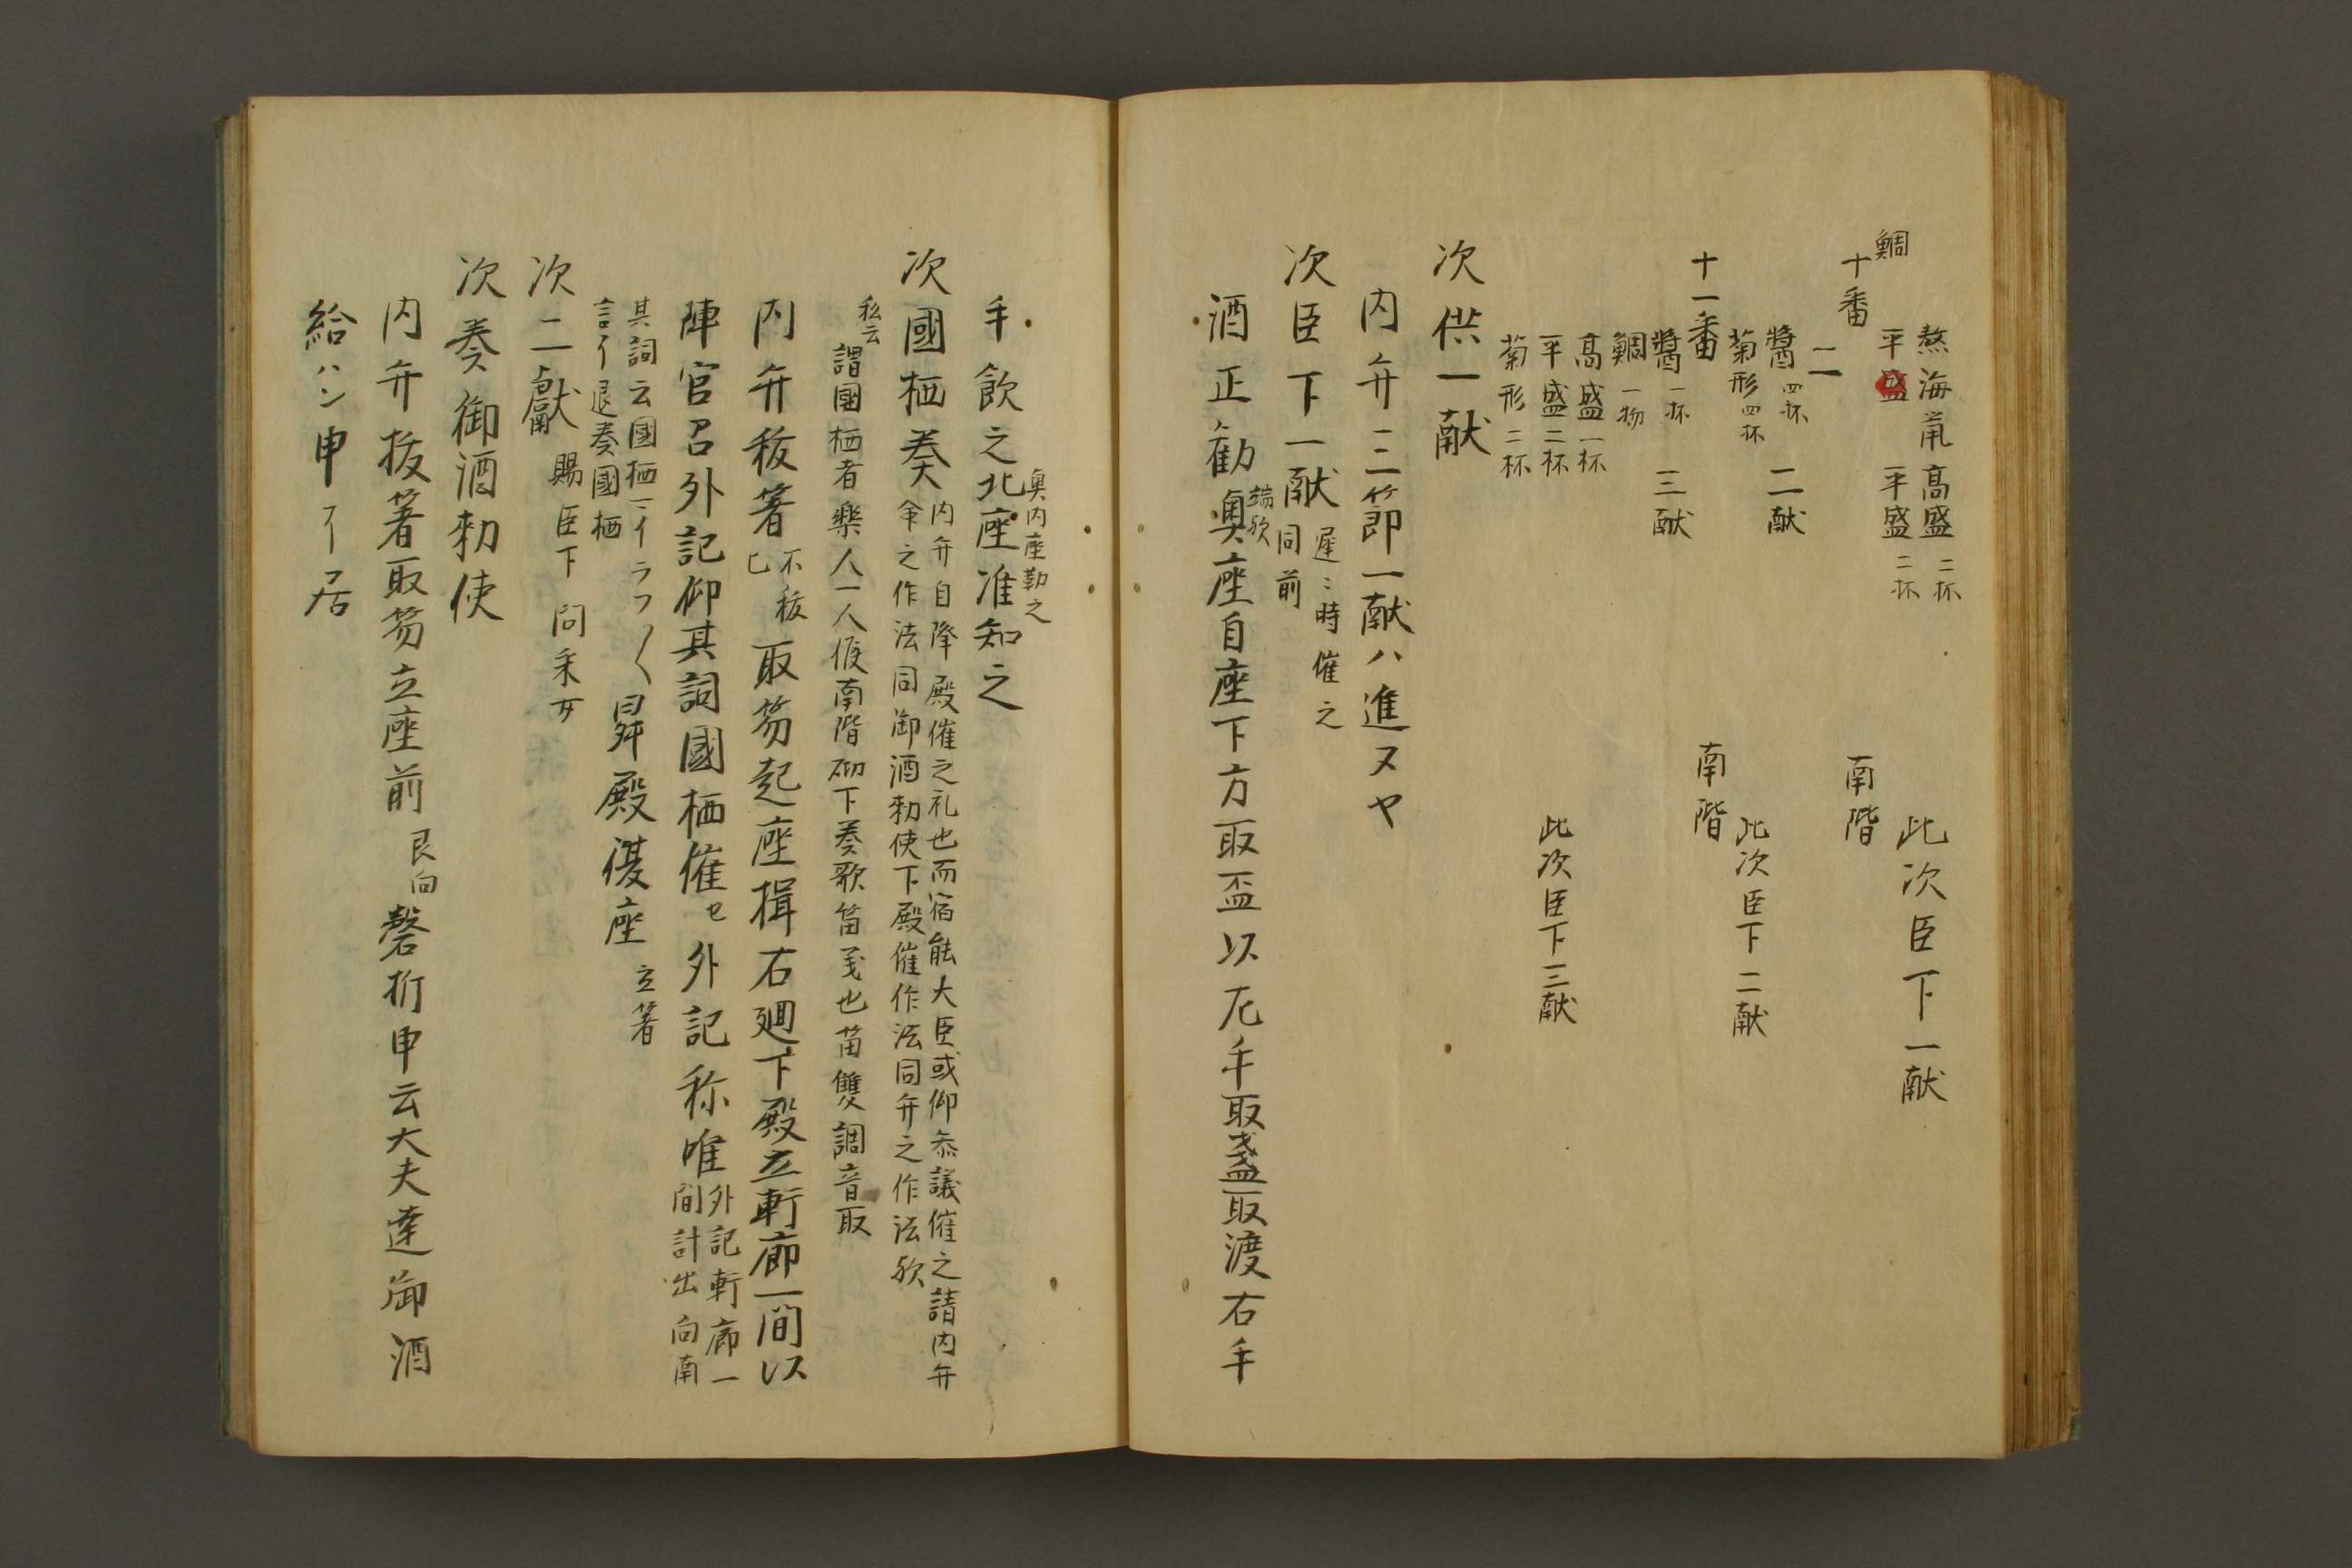 熬海鼠 高盛 二杯
平盛 平盛 二杯
此次臣下一献
鯛
十番
南階
二
醬 四杯 二献
菊形 四杯
此次臣下二献
十一番
南階
醬 一杯 三献
鯛 一物
高盛 一杯
平盛 二杯
此次臣下三献
菊形 二杯
次供一献
内弁二三節一献ハ進ヌヤ
次臣下一献 遅〻時催之
同前
酒正勧奥座自座下方取盃以左手取盞取渡右手
端歟
奥内座勤之
手飲之北座准知之
次國栖奏 内弁自降殿催之礼也而宿能大臣或仰参議催之請内弁
令之作法同御酒勅使下殿催作法同弁之作法歟
私云
謂國栖者樂人一人候南階砌下奏歌笛義也笛雙調音取
内弁抜箸 不抜 取笏起座揖右廻下殿立軒廊一間以
陣官召外記仰其詞國栖催セ外記称唯 外記軒廊一
間計出向南
其詞云國栖
言了退奏國栖 昇殿復座 立箸
次二獻 賜臣下 問采女
次奏御酒勅使
内弁抜箸取笏立座前 艮向 磬折申云大夫達御酒
給ハン申了居